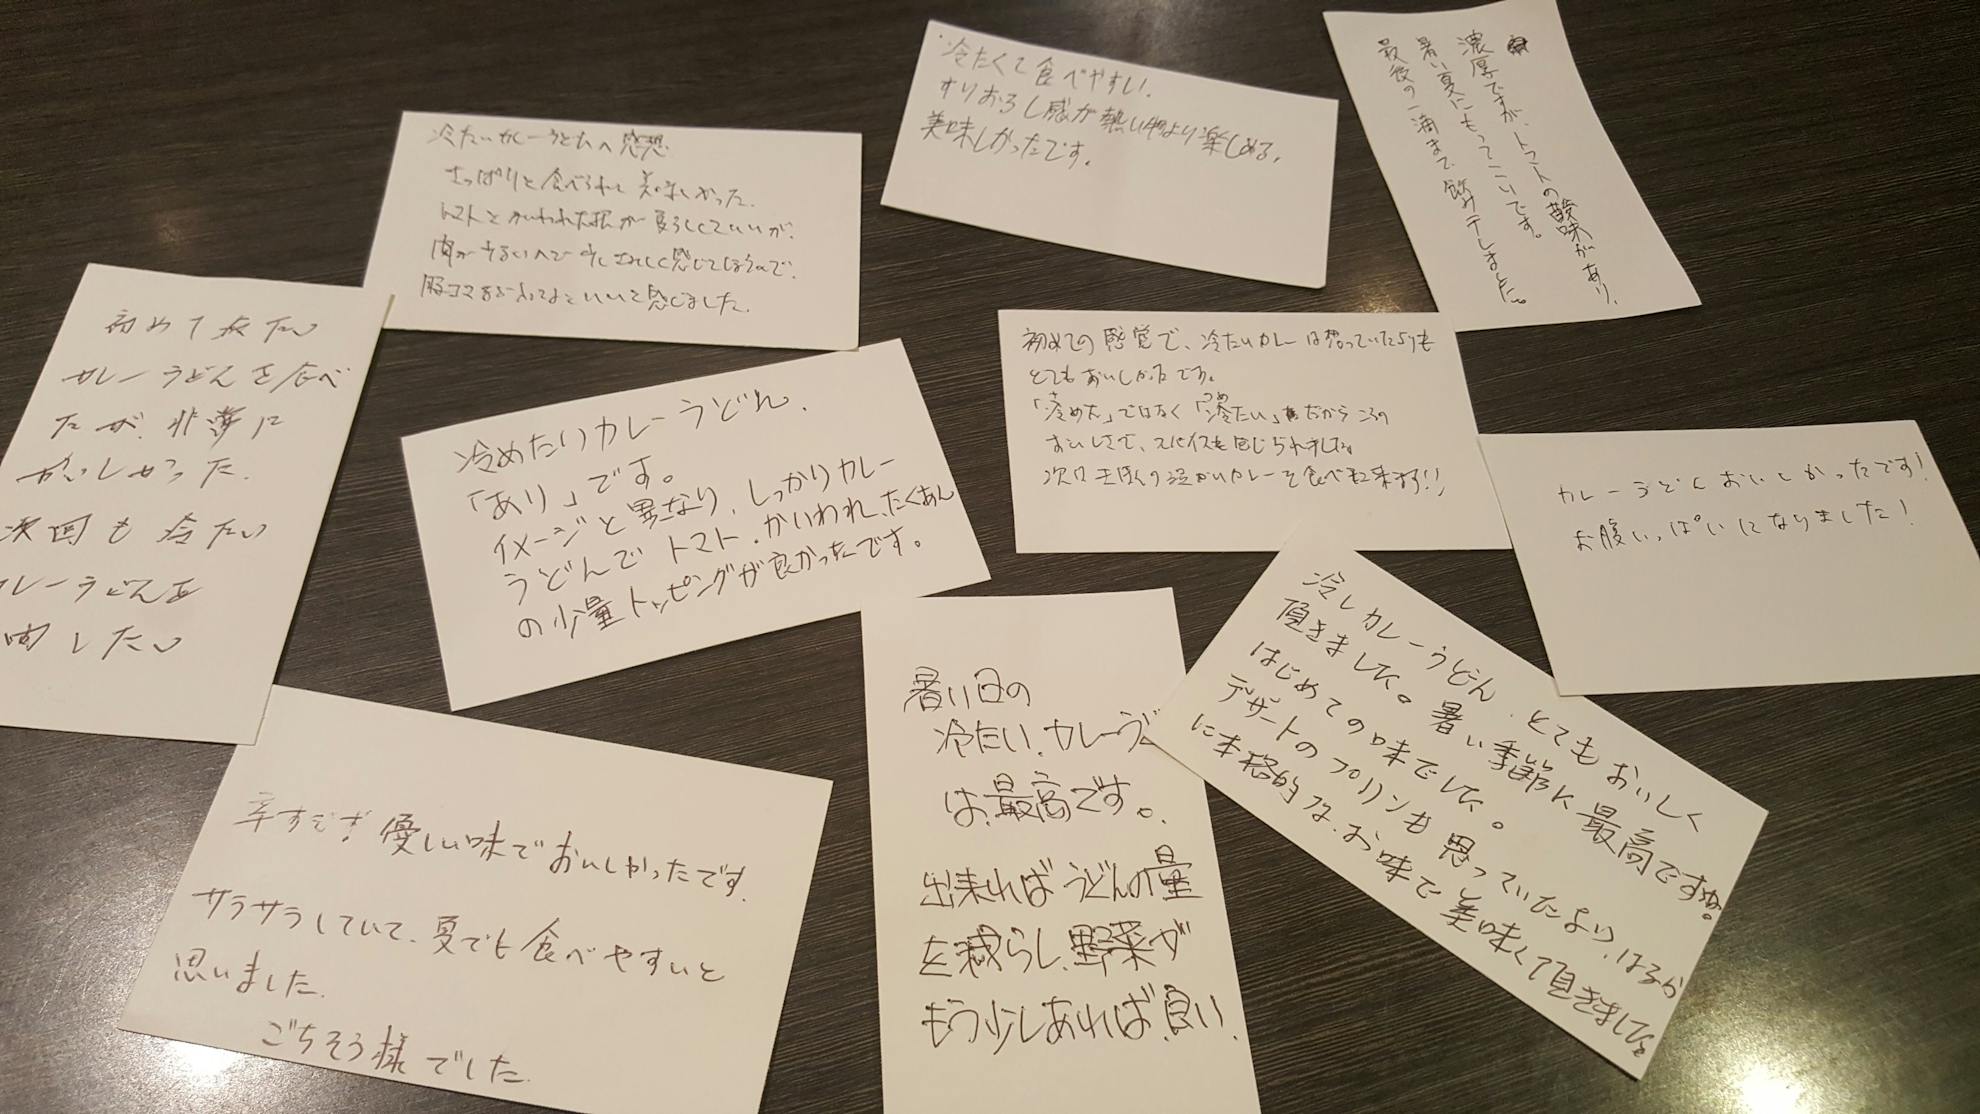 冷たいカレーうどんへ感想
さっぱりと食べられて美味しかった。
トマトとかいわれ大根が良いが、
感じてしまうので、
いいと感じました。
冷たくて食べやすい!
すりおろし感が熱い物より楽しめる。
美味しかったです。
濃厚ですが、トマトの酸味があり、
暑い夏にもってこいです。
最後の一滴まで飲みホしました。
初めて冷たい
カレーうどんを食べ
たが、非常に
おいしかった。
次回も冷たい
カレーうどんを
したい
冷めたいカレーうどん、
「あり」です。
イメージと異なり、しっかりカレー
うどんで トマト、かいわれ、たくあん
の少量トッピングが良かったです。
初めての感覚で、冷たいカレーは思っていたよりも
とてもおいしかったです。
「冷めた」ではなく「冷たい」だからころの
おいしさで、スパイスも感じられました。
次回も冷たいカレーを食べに来ます!!
カレーうどんおいしかったです!
お腹いっぱいになりました!
辛すぎず優しい味でおいしかったです。
サラサラしていて、夏でも食べやすいと
思いました。
ごちそう様でした。
暑い日の
冷たい、カレーうど
は、最高です。
出来ればうどんの量
を減らし、野菜が
もう少しあれば、良い。
冷しカレーうどん、とてもおいしく
頂きました。暑い季節に最高ですね。
はじめての味でした。
デザートのプリンも思っていたより、はるか
に本格的な、お味で美味くて頂きました。